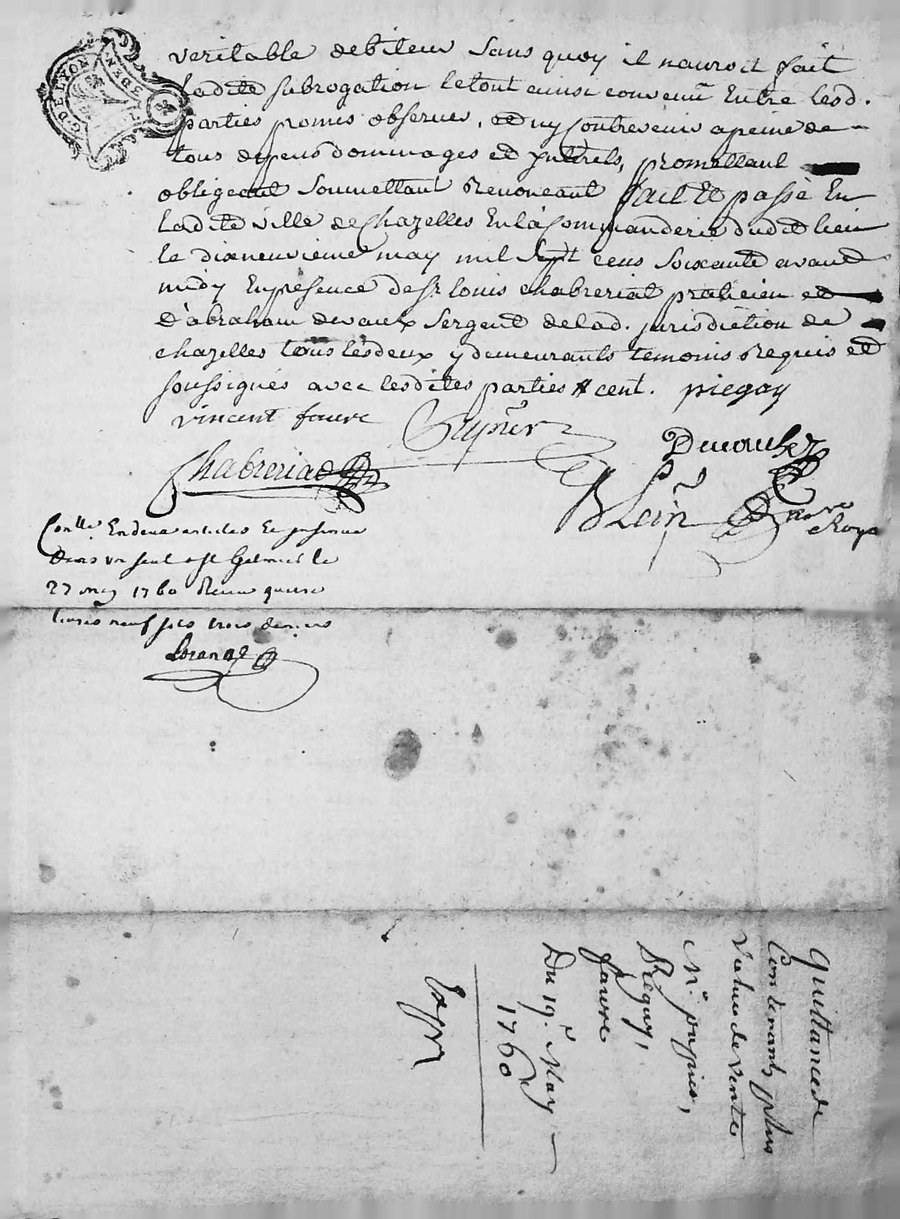 G. DE LYON
veritable debiteur sans quoy il nauroit fait
ladite subrogation le tout ainsi convenu Entre lesd.
parties promis observer, et ny contrevenir a peine de
tous depens dommages et Interets, promettant
obligeant soumettant Renonceant fait et passé En
ladite ville de Chazelles En la Commanderie dudit lieu
le dixneuvieme may mil sept cens soixante avant
midy En presence de Sr louis chabreriat praticien et
d'abraham devaux sergent de lad. jurisdiction de
chazelles tous lesdeux y demeurants temoins Requis et
soussignés avec lesdites parties cent. piegay
vincent faure
Devaux
Chabreriat
Blein nore Royal
Conllé En deux articles Et
dans un seul a St Galmier le
27 may 1760 Receu quinze
livres neuf sols trois deniers
quittance de
Contenant plus
Value de Vente
Mr.
Piegay,
faure
Du 19e May
1760
Expr